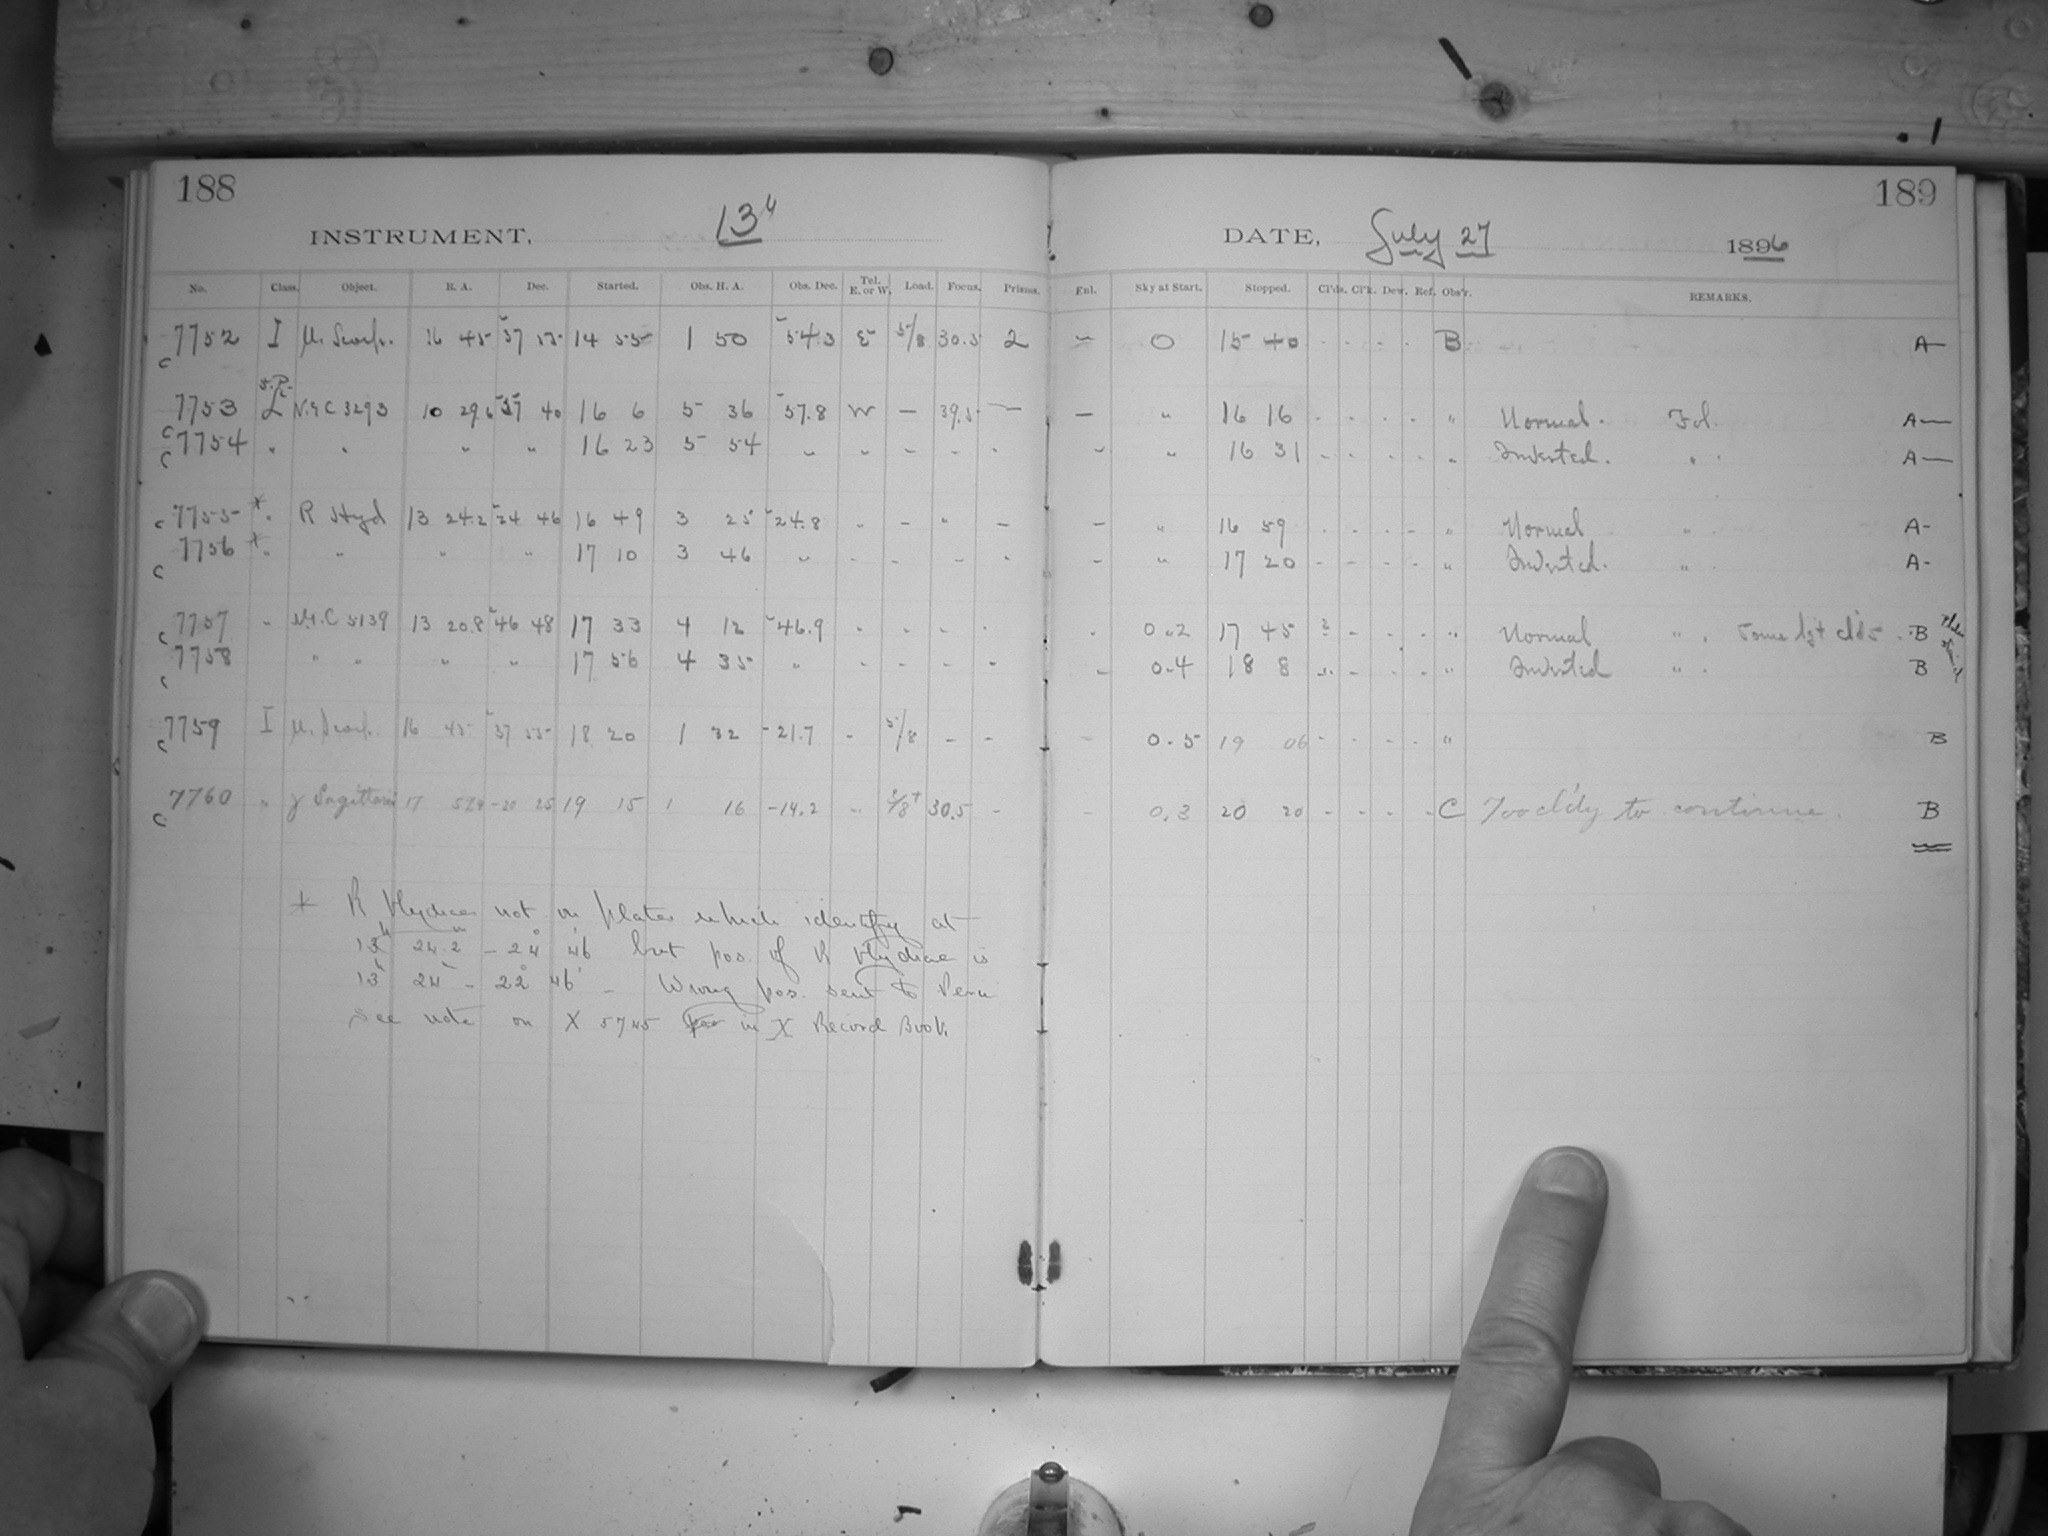 188
189
INSTRUMENT, 13"
DATE, July 27 1896
No. Class. Object. R. A. Dec. Started. Obs. H. A. Obs. Dec. Tel. E. or W. Load. Focus. Prisms. Enl. Sky at Start. Stopped. Cl'ds. Cl'k. Dew. Ref. Obs'r. REMARKS.
7752 I μ. Scorp. 16 45 -37 53 14 55 1 50 -54.3 E 5/8 30.5 2 - 0 15 40 - - - - B A-
7753 N.G.C 3293 10 29.6 -57 40 16 6 5 36 -57.8 W - 39.5 - - " 16 16 - - - - " Normal. Fol. A-
7754 " " " " 16 23 5 54 " " - - - - " 16 31 - - - - " Inverted. " A-
7755 * " R Hyd 13 24.2 -24 46 16 49 3 25 -24.8 " - " - - " 16 59 - - - - " Normal " A-
7756 * " " " " 17 10 3 46 " - - - - - " 17 20 - - - - " Inverted. " A-
7757 " N.G.C 5139 13 20.8 -46 48 17 33 4 12 -46.9 - - - - - 0.2 17 45 2 - - - " Normal " . Some lgt cl'ds. B
7758 " " " " 17 56 4 35 " - - - - - 0.4 18 8 " - - - " Inverted " B
7759 I μ. Scorp. 16 45 -37 53 18 20 1 32 -21.7 - 5/8 - - - 0.5 19 06 - - - - " B
7760 " γ Sagittarii 17 59.4 -20 25 19 15 1 16 -14.2 " 30.5 - - 0.3 20 20 - - - - C Too cl'dy to continue. B
* R Hydrae not on plates which identify at
13h 24.2m -24° 46' but pos. of R Hydrae is
13h 24m - 22° 46' - Wrong pos. sent to Peru
See note on X 5745 in X Record Book.